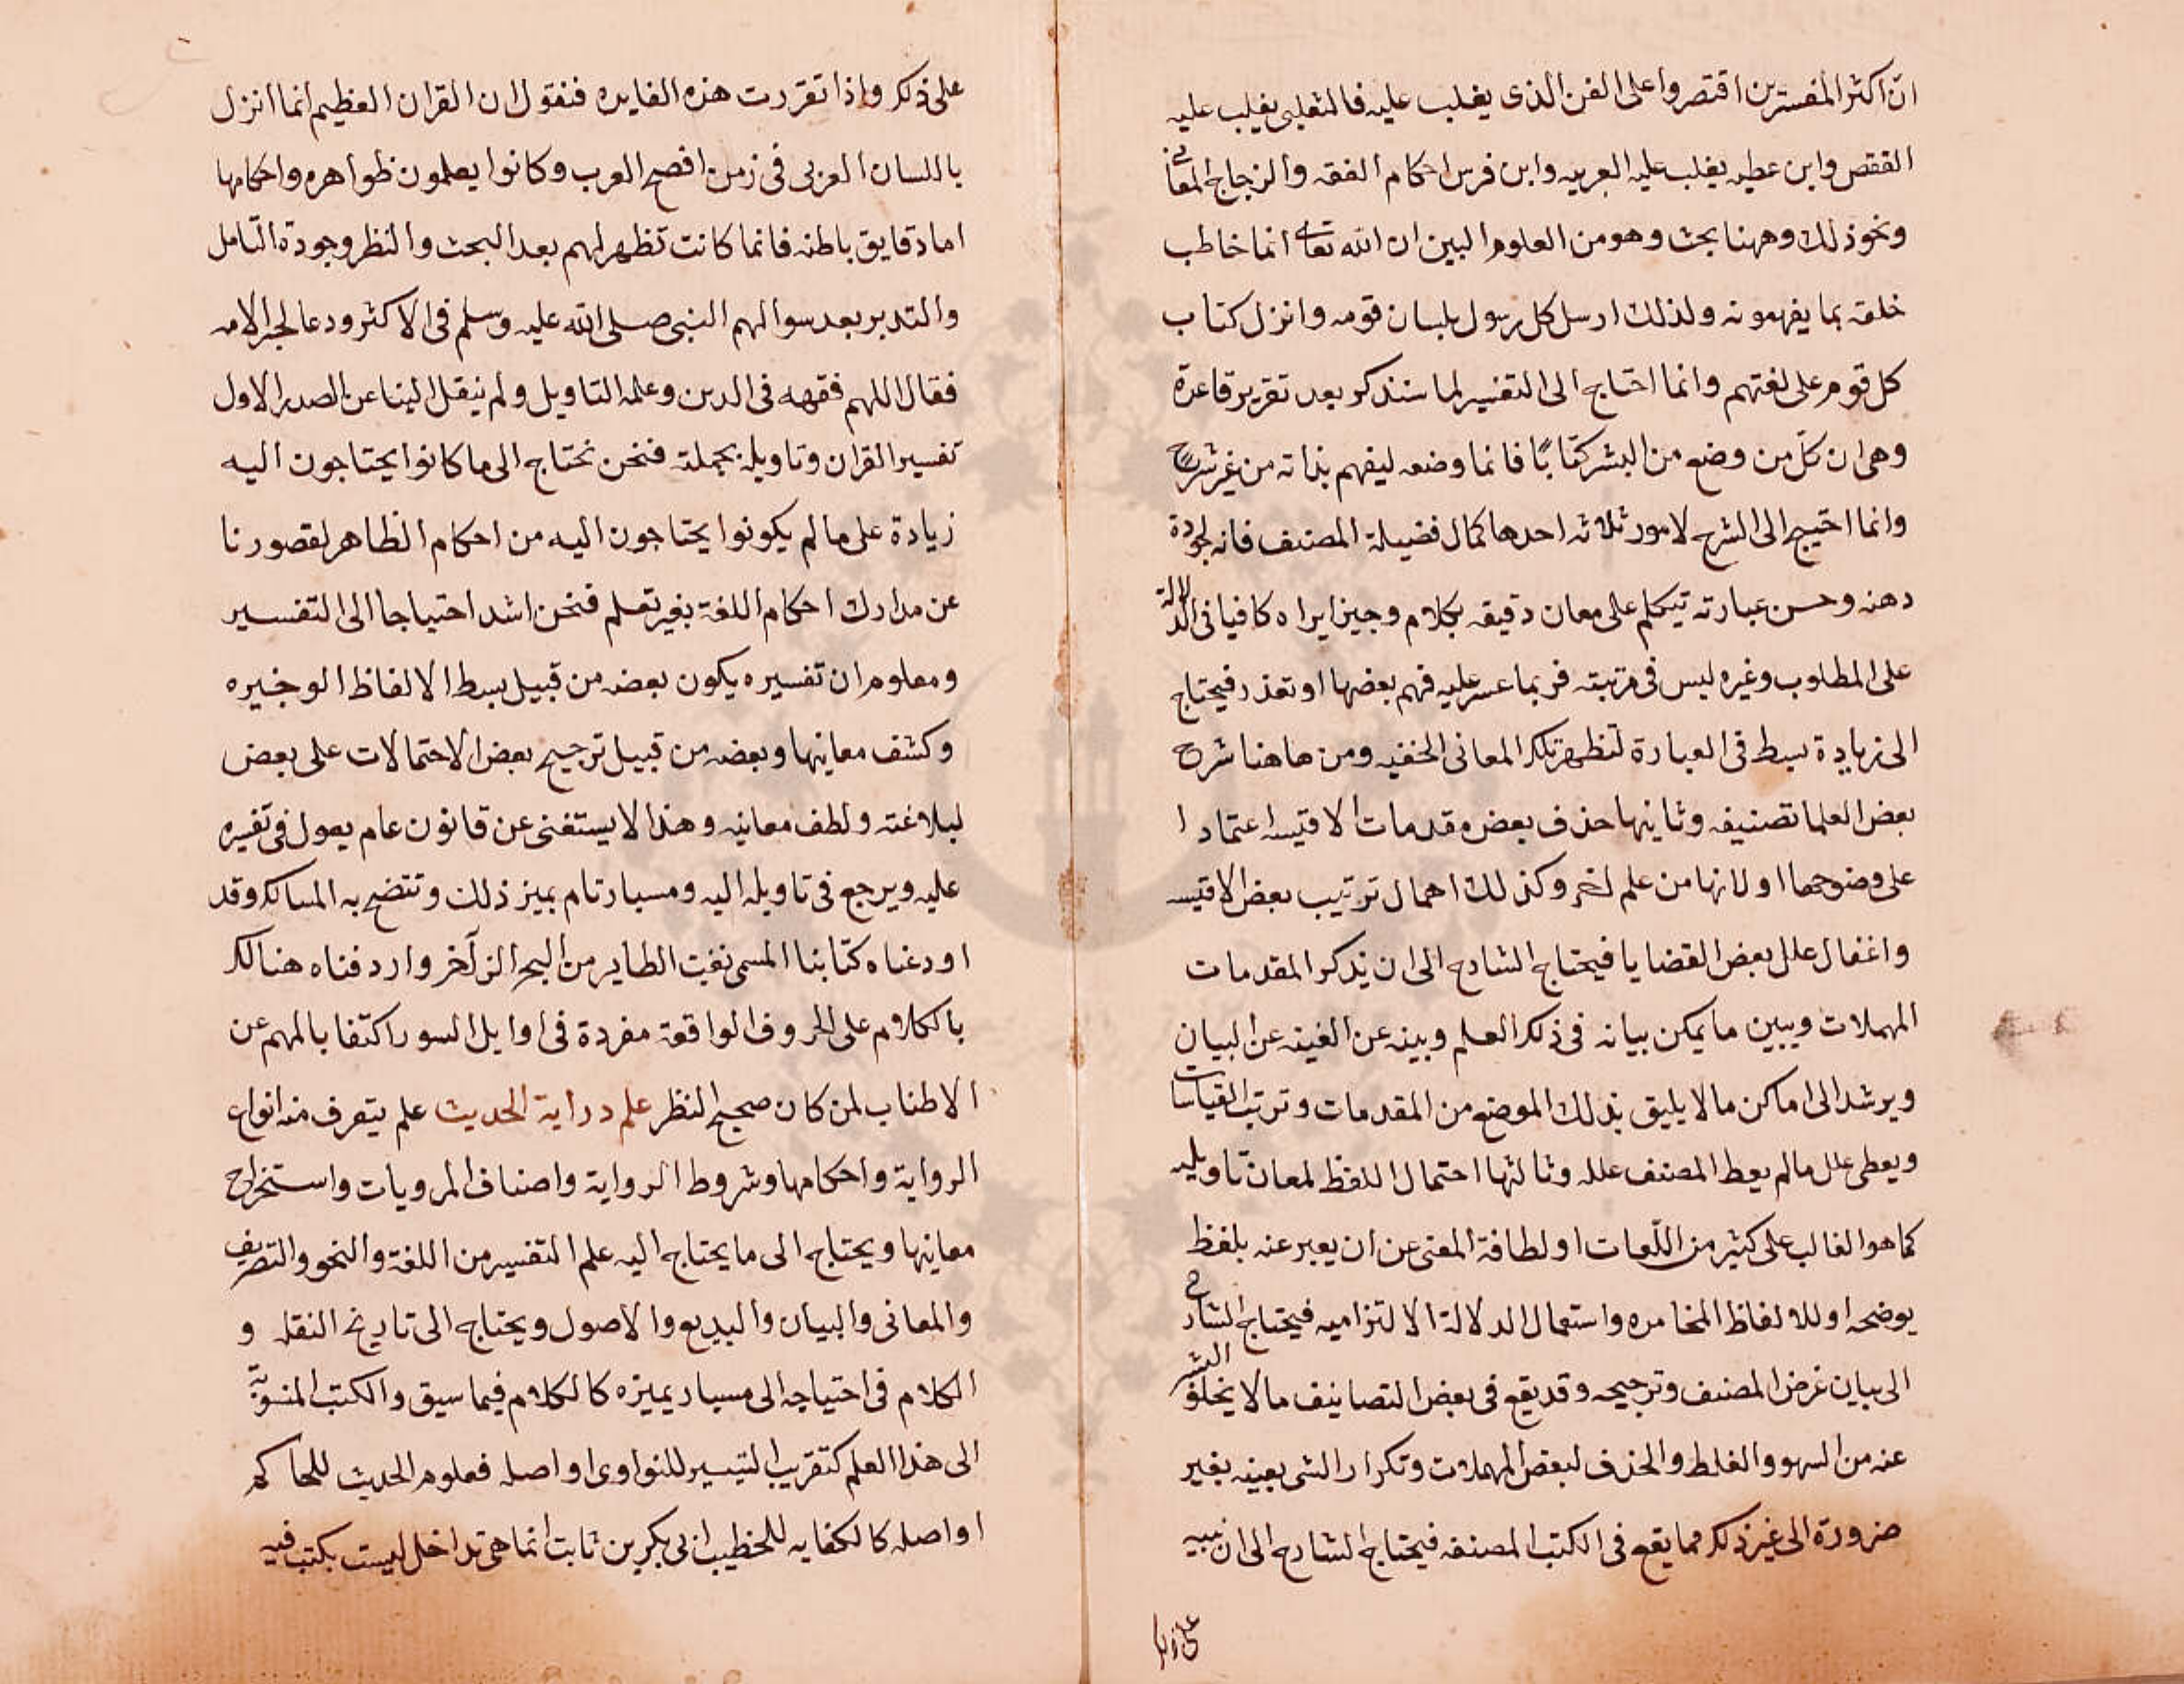 ان اكثر المفسرين اقتصروا على الفن الذى يغلب عليه فالثعلبى يغلب عليه
القصص وابن عطيه يغلب عليه العربيه وابن فرس احكام الفقه والزجاج المعانى
ونحو ذلك وههنا بحث وهو من العلوم البين ان الله تعالى انما خاطب
خلقه بما يفهمونه ولذلك ارسل كل رسول بلسان قومه وانزل كتاب
كل قوم على لغتهم وانما احتاج الى التفسير لما سنذكر بعد تقرير قاعدة
وهى ان كلّ من وضع من البشر كتابًا فانما وضعه ليفهم بذاته من غير شرح
وانما احتيج الى الشرح لامور ثلاثه احدها كمال فضيلة المصنف فانه لجودة
دهنه وحسن عبارته يتكلم على معان دقيقه بكلام وجيز ايراه كافيا فى الدلالة
على المطلوب وغيره ليس فى مرتبته فربما عسر عليه فهم بعضها او تعذر فيحتاج
الى زيادة بسط فى العبارة لتظهر تلك المعانى الخفيه ومن هاهنا شرح
بعض العلما تصنيفه وثانيها حذف بعض مقدمات الاقيسه اعتمادا
على وضوحها او لانها من علم اخر وكذلك اهمال ترتيب بعض الاقيسه
واغفال علل بعض القضايا فيحتاج الشارح الى ان يذكر المقدمات
المهملات ويبين ما يمكن بيانه فى ذلك العلم وبينه عن الغنيه عن البيان
ويرشد الى اماكن ما لا يليق بذلك الموضع من المقدمات وترتيب القياسات
ويعطى علل ما لم يعط المصنف علله وثالثها احتمال اللفظ لمعان تاويليه
كما هو الغالب على كثير من اللّغات او لطافة المعنى عن ان يعبر عنه بلفظ
يوضحه او للالفاظ المخامره واستعمال الدلالة الالتزاميه فيحتاج الشارح
الى بيان غرض المصنف وترجيحه وقد يقع فى بعض التصانيف ما لا يخلو البشر
عنه من السهو والغلط والحذف لبعض المهملات وتكرار الشى بعينه بغير
ضرورة الى غير ذلك مما يقع فى الكتب المصنفه فيحتاج الشارح الى ان ينبه
على ذلك
على ذلك واذا تقررت هذه الفايده فنقول ان القران العظيم انما انزل
باللسان العربى فى زمن افصح العرب وكانوا يعلمون ظواهره واحكامها
اما دقايق باطنه فانما كانت تظهر لهم بعد البحث والنظر وجودة التامل
والتدبر بعد سوالهم النبى صلى الله عليه وسلم فى الاكثر ودعا لحبر الامه
فقال اللهم فقهه فى الدين وعلمه التاويل ولم ينقل الينا عن الصدر الاول
تفسير القران وتاويله بجملته فنحن نحتاج الى ما كانوا يحتاجون اليه
زيادة على ما لم يكونوا يحتاجون اليه من احكام الظاهر لقصورنا
عن مدارك احكام اللغة بغير تعلم فنحن اشد احتياجا الى التفسير
ومعلوم ان تفسيره يكون بعضه من قبيل بسط الالفاظ الوجيزه
وكشف معانيها وبعضه من قبيل ترجيح بعض الاحتمالات على بعض
لبلاغته ولطف معانيه وهذا لا يستغنى عن قانون عام يعول فى تفسيره
عليه ويرجع فى تاويله اليه ومسبار تام يميز ذلك وتتضح به المسالك وقد
اودعناه كتابنا المسمى نغبت الطاير من البحر الزآخر واردفناه هنالك
بالكلام على الحروف الواقعة مفردة فى اوايل السور اكتفا بالمهم عن
الاطناب لمن كان صحيح النظر علم دراية الحديث علم يتعرف منه انواع
الرواية واحكامها وشروط الرواية واصناف المرويات واستخراج
معانيها ويحتاج الى ما يحتاج اليه علم التفسير من اللغة والنحو والتصريف
والمعانى والبيان والبديع والاصول ويحتاج الى تاريخ النقله و
الكلام فى احتياجه الى مسبار يميزه كالكلام فيما سبق والكتب المنسوبة
الى هذا العلم كتقريب التيسير للنواوى او اصله فعلوم الحديث للحاكم
او اصله كالكفايه للخطيب ابى بكر بن ثابت انما هى تداخل ليست بكتب فيه